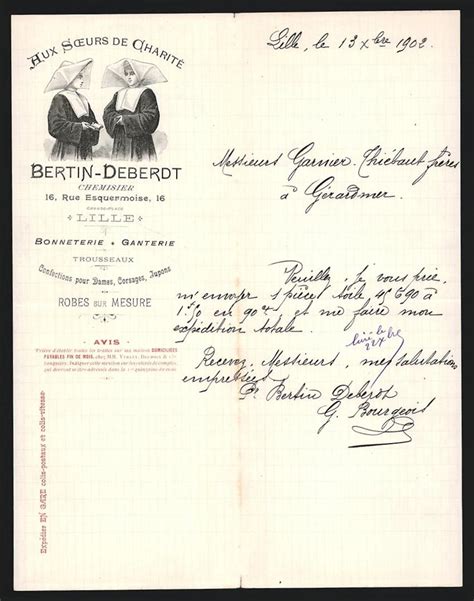 Aux Sœurs de Charité
BERTIN-DEBERDT
CHEMISIER
16, Rue Esquermoise, 16
GRANDE-PLACE
LILLE
BONNETERIE + GANTERIE
TROUSSEAUX
Confections pour Dames, Corsages, Jupons
ROBES SUR MESURE
AVIS
PAYABLES FIN DE MOIS
Expédier EN GARE colis-postaux et colis-vitesse.
Lille, le 13 Xbre 1902.
Messieurs Garnier-Thiébaut frères
à Gérardmer.
Veuillez, je vous prie,
m'envoyer 1 pièces toile n° 690 à
en 90 et me faire mon
expédition totale.
Recevez, Messieurs, mes salutations
empressées.
Pr Bertin Deberdt
G. Bourgeois